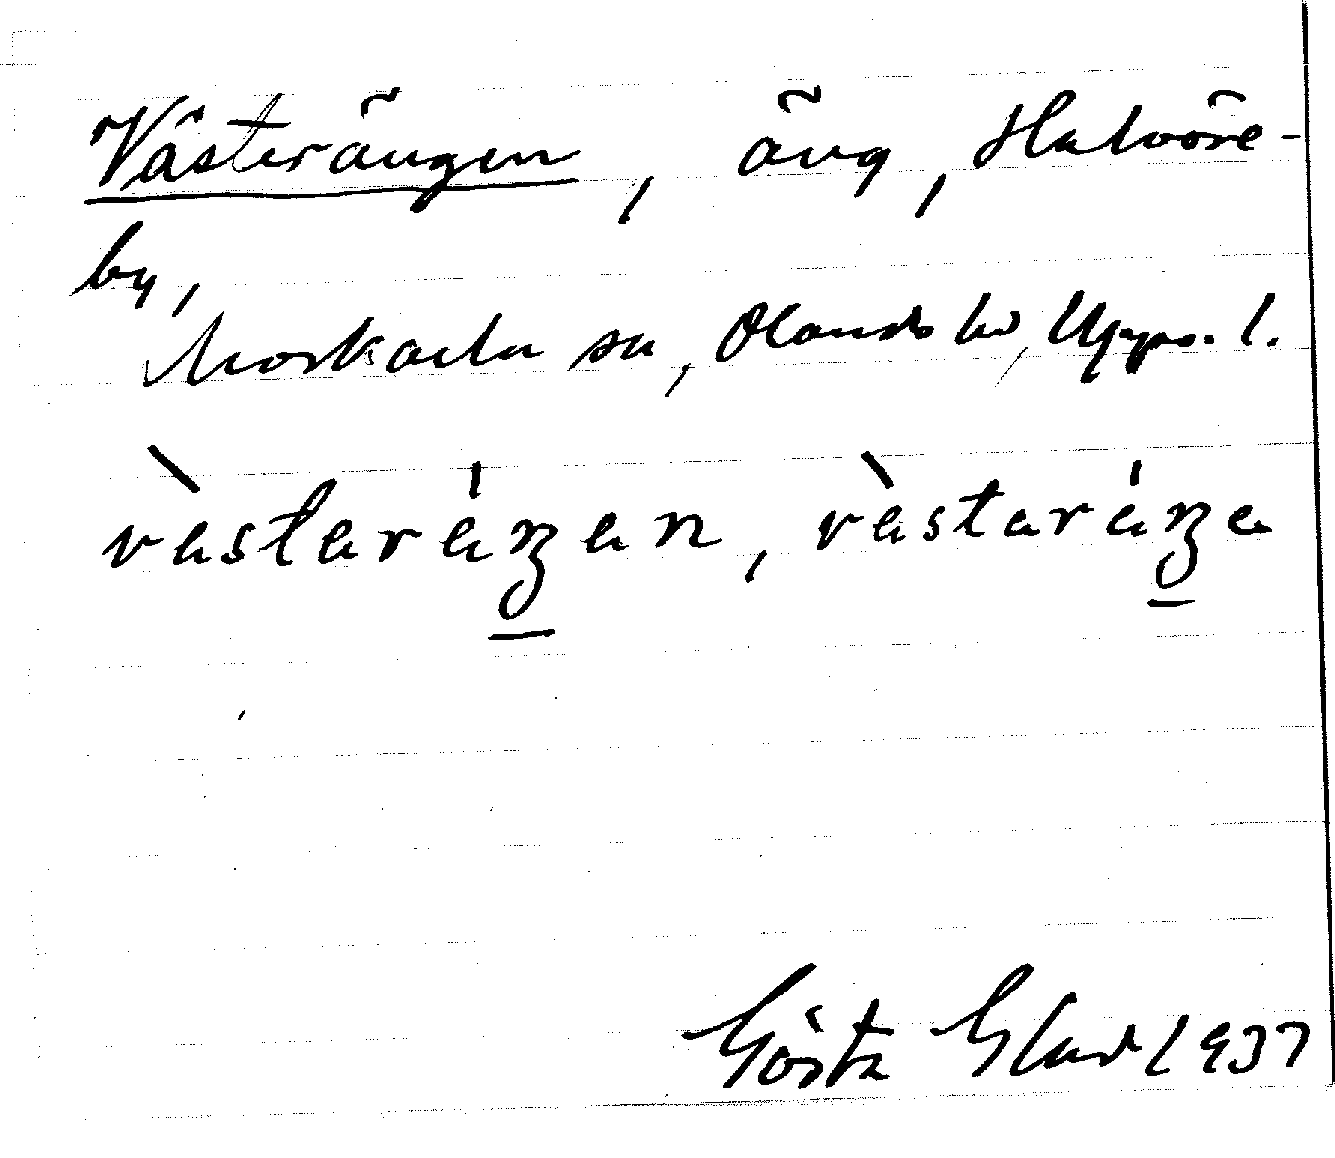 Västerängen, äng, Halvöre-
by,
Morkarla sn, Olands hd, Upps. l.
västeräŋen, västeräŋe
Gösta Glad 1937